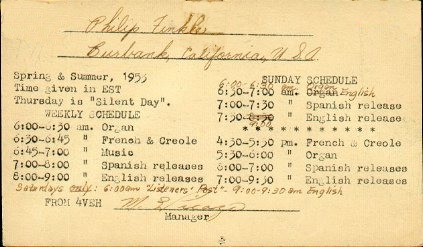 Philip Finkle
Burbank, California, USA
Spring & Summer, 1955
Time given in EST
Thursday is "Silent Day".
WEEKLY SCHEDULE
6:00-6:30 am. Organ
6:30-6:45 " French & Creole
6:45-7:00 " Music
7:00-8:00 " Spanish releases
8:00-9:00 " English releases
SUNDAY SCHEDULE
6:00-6:30 am Organ
6:30-7:00 am. English
7:00-7:30 " Spanish release
7:30-8:30 " English release
* * * * * * * * * * *
4:30-5:30 pm. French & Creole
5:30-6:00 " Organ
6:00-7:00 " Spanish releases
7:00-9:30 " English releases
Saturdays only: 6:00am "Listeners' Post". 9:00-9:30 am English
FROM 4VEH
Manager